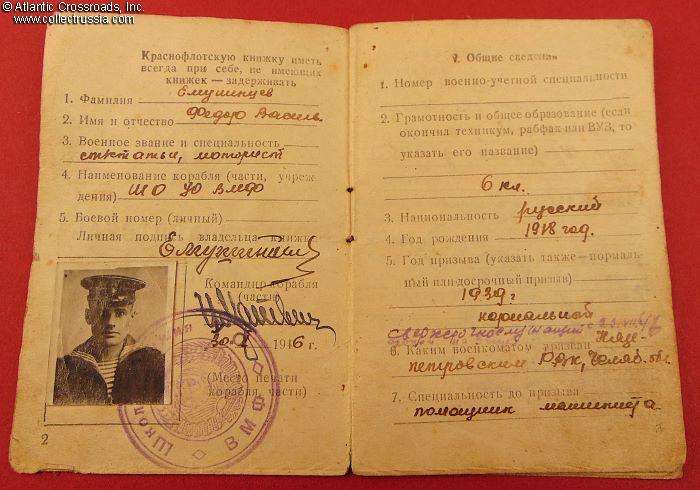 © Atlantic Crossroads, Inc.
www.collectrussia.com
Краснофлотскую книжку иметь
всегда при себе, не имеющих
книжек — задерживать
1. Фамилия
2. Имя и отчество Федор Василь.
3. Военное звание и специальность
моторист
4. Наименование корабля (части, учреж-
дения) ШО УО ВМФ
5. Боевой номер (личный)
Личная подпись владельца книжки
Командир корабля
(части)
1946 г.
(Место печати
корабля, части)
Школ
ВМФ
2
V. Общие сведения
1. Номер военно-учетной специальности
2. Грамотность и общее образование (если
окончил техникум, рабфак или ВУЗ, то
указать его название)
6 кл.
3. Национальность русский
4. Год рождения 1918 год.
5. Год призыва (указать также — нормаль-
ный или досрочный призыв)
1939 г.
нормальной
6. Каким военкоматом призван
петровским РВК, Челяб. обл.
7. Специальность до призыва
помощник машиниста